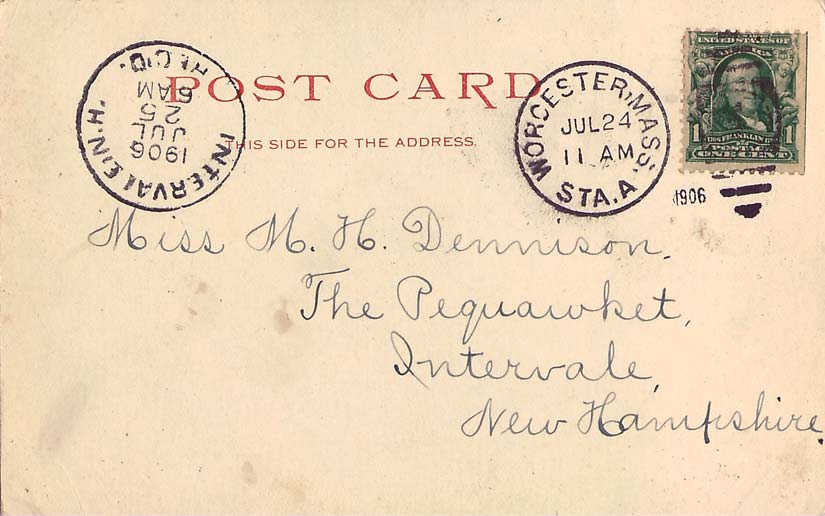 POST CARD
THIS SIDE FOR THE ADDRESS.
INTERVALE, N.H.
REC'D.
1906
JUL
25
6 AM
WORCESTER, MASS.
JUL 24
11 AM
STA. A
1906
UNITED STATES OF
FRANKLIN
POSTAGE
1 1
ONE CENT
Miss M. H. Dennison.
The Pequawket,
Intervale,
New Hampshire.